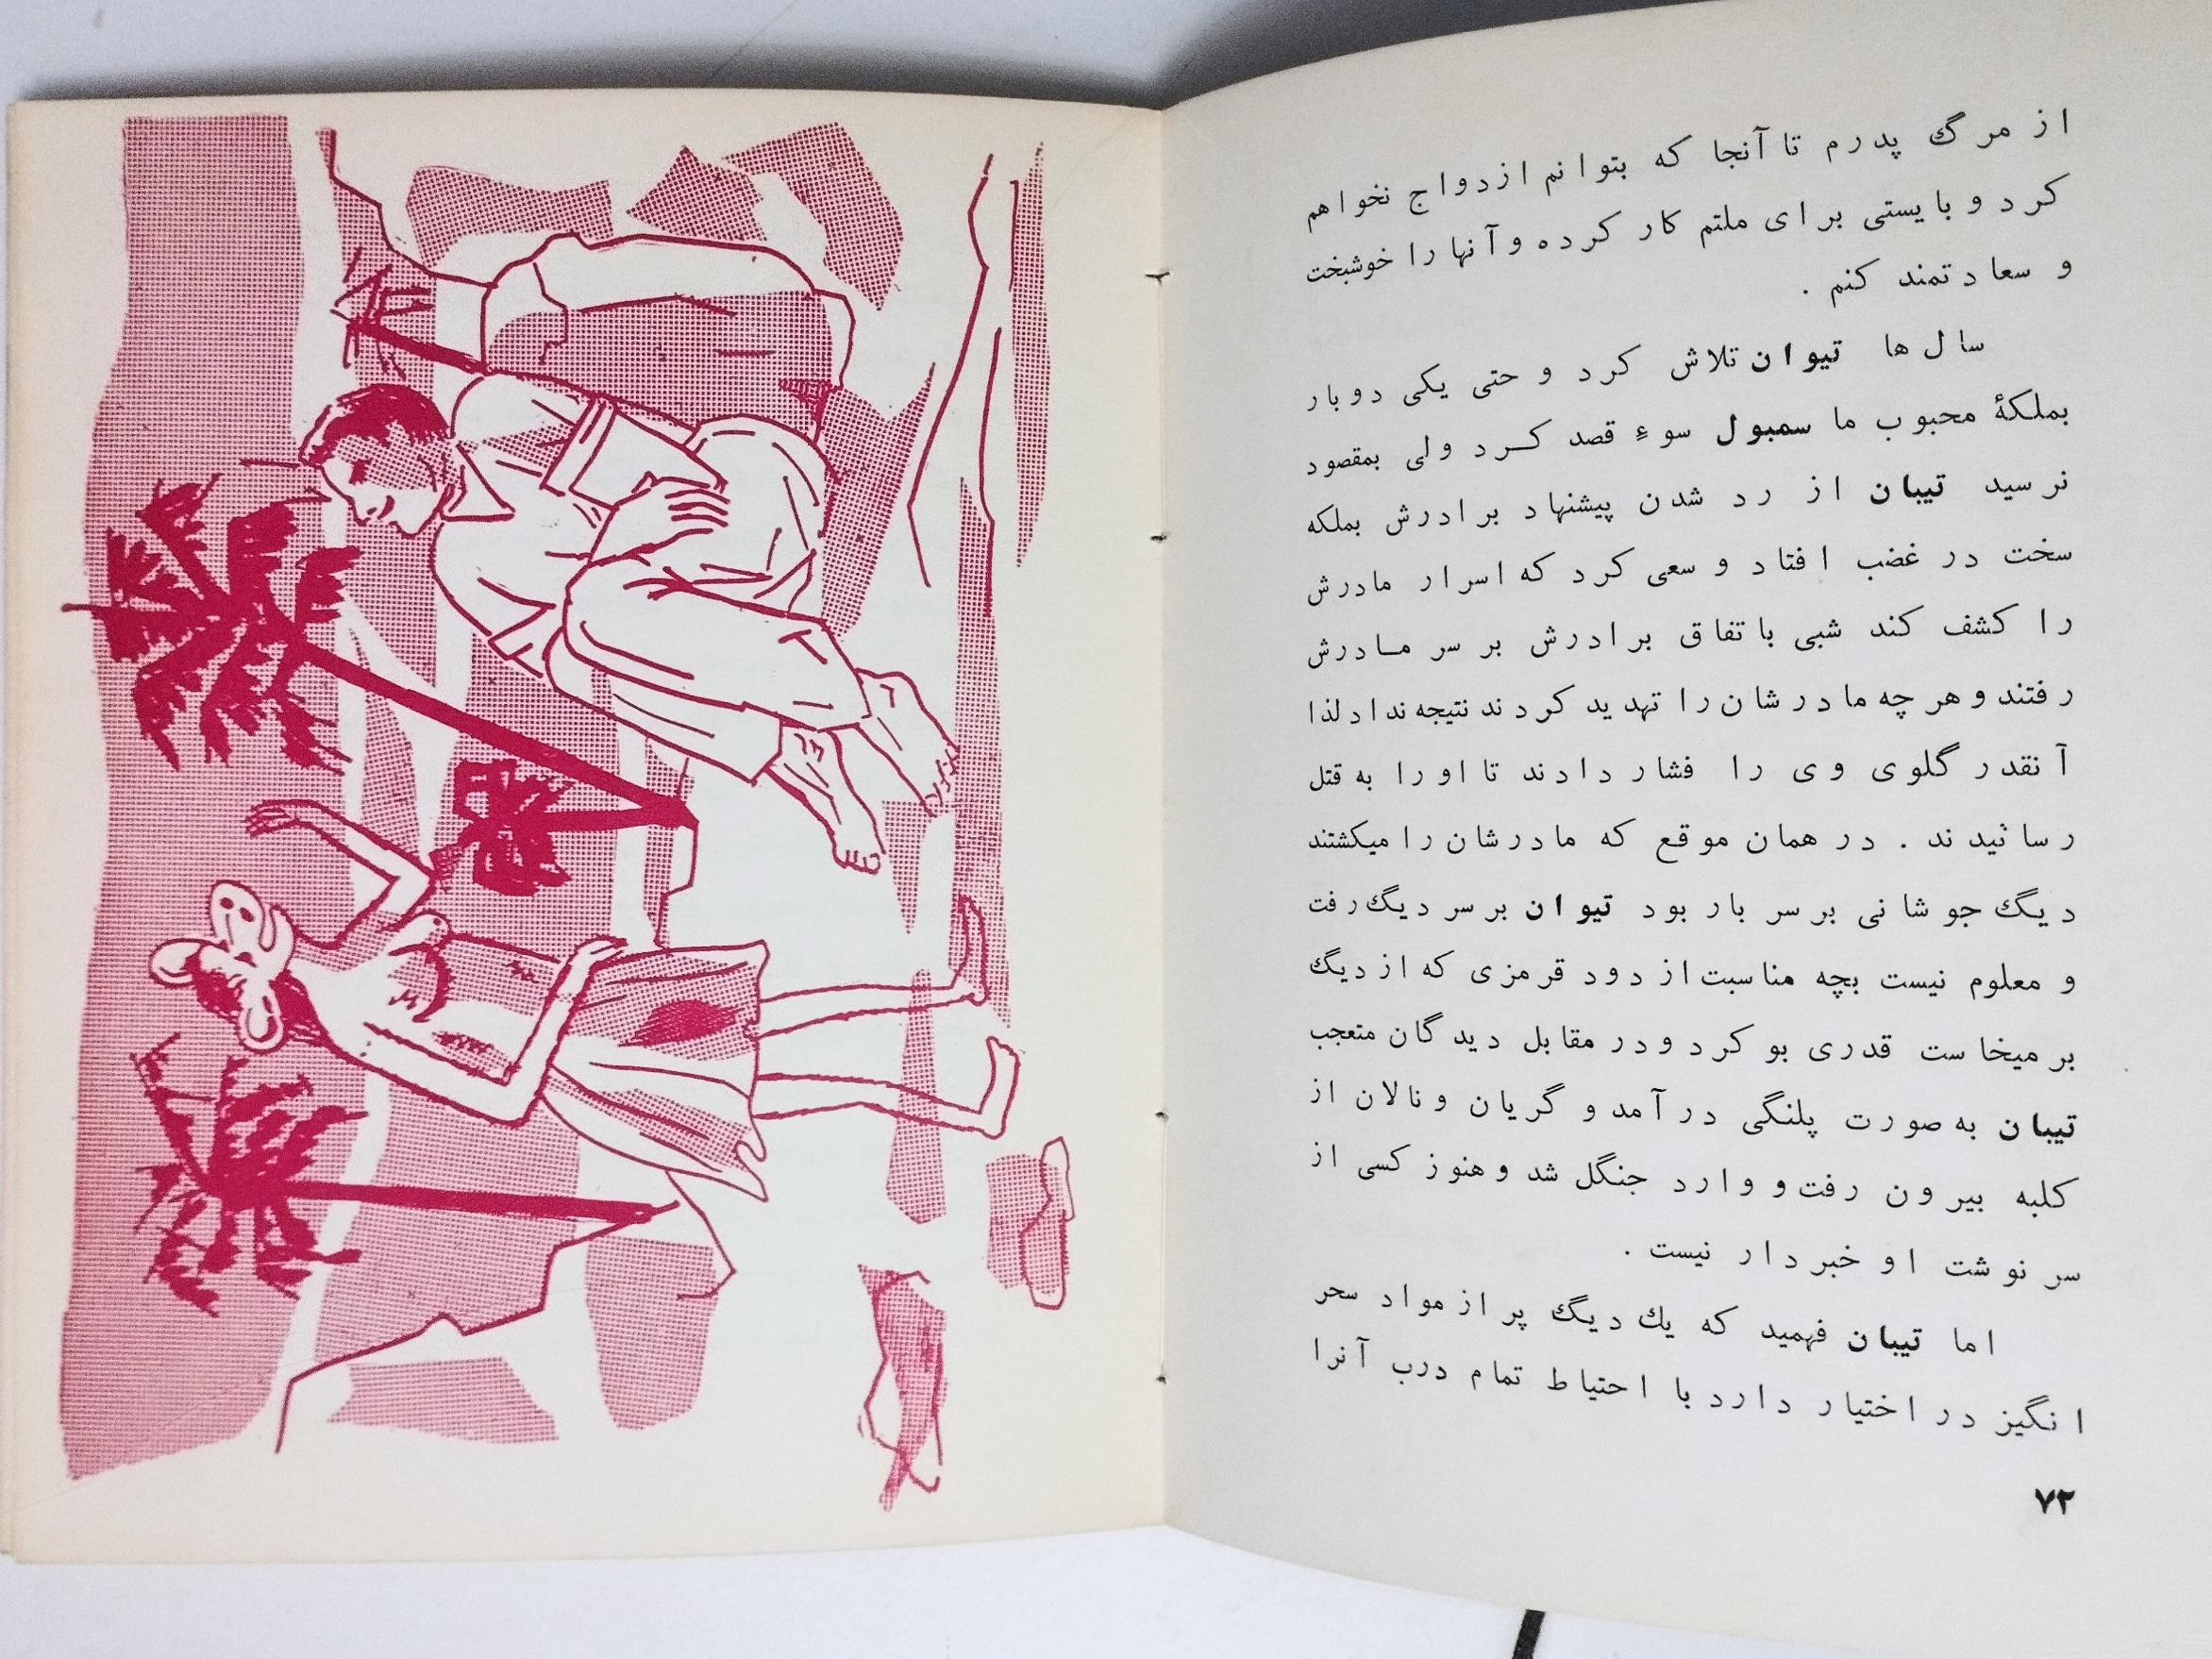 از مرگ پدرم تا آنجا که بتوانم ازدواج نخواهم
کرد و بایستی برای ملتم کار کرده و آنها را خوشبخت
و سعادتمند کنم .
سال ها تیوان تلاش کرد و حتی یکی دوبار
بملکهٔ محبوب ما سمبول سوء قصد کرد ولی بمقصود
نرسید تیبان از رد شدن پیشنهاد برادرش بملکه
سخت در غضب افتاد و سعی کرد که اسرار مادرش
را کشف کند شبی باتفاق برادرش بر سر مادرش
رفتند و هر چه مادرشان را تهدید کردند نتیجه نداد لذا
آنقدر گلوی وی را فشار دادند تا او را به قتل
رسانیدند . در همان موقع که مادرشان را میکشتند
دیگ جوشانی بر سر بار بود تیوان بر سر دیگ رفت
و معلوم نیست بچه مناسبت از دود قرمزی که از دیگ
بر میخاست قدری بو کرد و در مقابل دیدگان متعجب
تیبان به صورت پلنگی در آمد و گریان و نالان از
کلبه بیرون رفت و وارد جنگل شد و هنوز کسی از
سر نوشت او خبردار نیست .
اما تیبان فهمید که یک دیگ پر از مواد سحر
انگیز در اختیار دارد با احتیاط تمام درب آنرا
۷۲